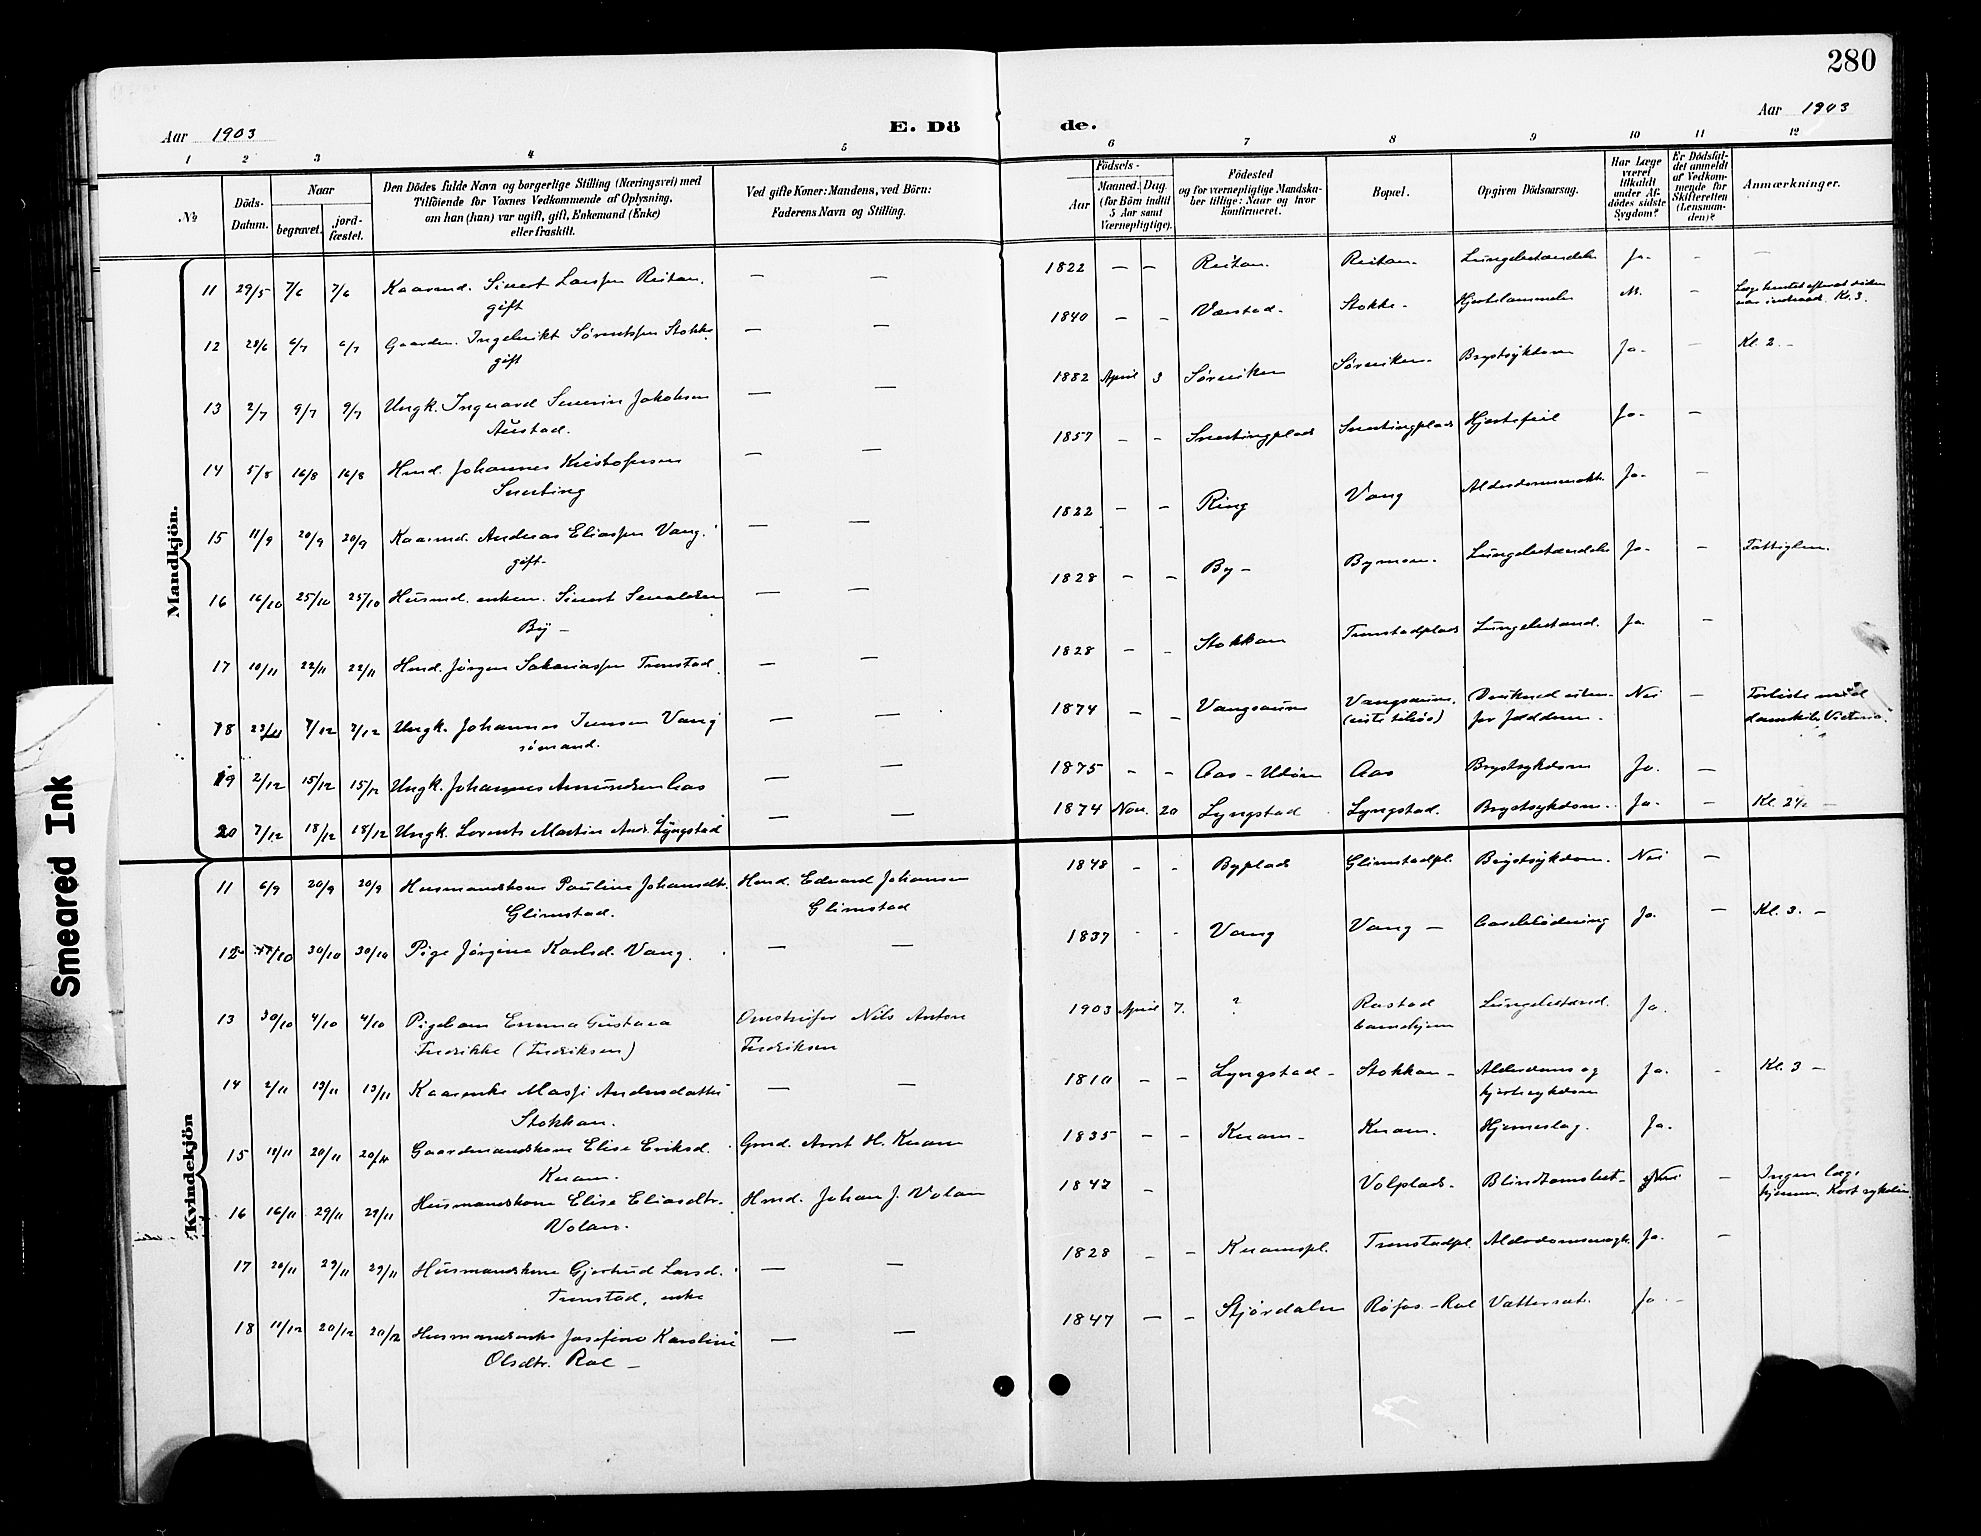 280
Aar 1903
E. Dö
de.
Aar 1903
1 2 3 4 5 6 7 8 9 10 11 12
No
Döds-Datum.
Naar
begravet.
jord-fæstet.
Den Dödes fulde Navn og borgerlige Stilling (Næringsvei) med
Tilföiende for Voxnes Vedkommende af Oplysning,
om han (hun) var ugift, gift, Enkemand (Enke)
eller fraskilt.
Ved gifte Koner: Mandens, ved Börn:
Faderens Navn og Stilling.
Födsels-
Aar
Maaned. Dag.
(for Börn indtil
5 Aar samt
Værnepligtige).
Födested
og for værnepligtige Mandska-
ber tillige: Naar og hvor
konfirmeret.
Bopæl.
Opgiven Dödsaarsag.
Har Læge
været
tilkaldt
under Af-
dödes sidste
Sygdom?
Er Dödsfal-
det anmeldt
af Vedkom-
mende for
Skifteretten
(Lensman-
den)?
Anmærkninger.
Mandkjön.
11 29/5 7/6 7/6 Kaarmd. Sivert Larssen Reitan. — — 1822 — — Reitan. Reitan. Lungebetændelse Ja. - —
gift
12 28/6 6/7 6/7 Gaardm. Ingebrikt Sørentssen Stokke — — 1840 — — Værstad. Stokke - Hjertelammelse —
gift
13 2/7 9/7 9/7 Ungk. Ingvard Severin Jakobsen — — 1882 April 3 Sørviken Sørviken. Brystsykdom Ja. — Kl. 2. -
Austad.
14 5/8 16/8 16/8 Hmd. Johannes Kristofersen — — 1857 - - Snertingplads Snertingplads Hjertefeil Ja. —
Snerting
15 11/9 20/9 20/9 Kaarmd. Andreas Eliassen Vang. — — 1822 - - Ring Vang Alderdomssvakh. Ja. —
gift.
16 16/10 25/10 25/10 Husmd. enkem. Sivert Sevaldsen — — 1828 — — By - Bymoen. Lungebetændelse Ja. — Fattiglem.
By —
17 10/11 22/11 22/11 Hmd. Jørgen Sakariassen Tronstad — — 1828 - - Stokkan Tronstadplads Lungebetænd. Ja. —
18 23/11 7/12 7/12 Ungk. Johannes Jensen Vang — — 1874 — — Vangsaunn Vangsaunn. Druknet uten- Nei — Forliste med
sømand. for Jæderen. damsk. Victoria.
19 2/12 15/12 15/12 Ungk. Johannes Amundsen Aas — — 1875 - - Aas - Utøen Aas Brystsykdom Ja. —
20 7/12 18/12 18/12 Ungk. Lorents Martin And. Lyngstad — — 1874 Nov. 20 Lyngstad Lyngstad. Brystsykdom. Ja. —
Kvindekjön
11 6/9 20/9 20/9 Husmandskone Pauline Johansdtr. Hmd. Edvard Johansen 1848 - - Byplads Glimstadpl. Brystsykdom. Nei —
Glimstad. Glimstad
12 30/10 30/10 Pige Jørgine Karlsd. Vang. — — 1837 - - Vang Vang — Ja. — Kl. 3. -
13 30/10 4/10 4/10 Pigebarn Emma Gustava Nils Anton 1903 April 7. ? Rostad Lungebetænd. Ja.
Fredrikke (Fredriksen) Fredriksen barnehjem
14 2/11 13/11 13/11 Kaarenke Massi Andersdatter — — 1810 - - Lyngstad - Stokkan - Alderdoms og Ja. - Kl. 3 -
Stokkan. hjertesykdom
15 18/11 20/11 20/11 Gaardmandskone Elise Eriksd. Gmd. Arnt H. Kvam 1835 — - Kvam - Kvam. Hjerneslag. Ja.
Kvam.
16 16/11 29/11 29/11 Husmandskone Elise Eliasdtr. Hmd. Johan J. Volan 1847 — Volplads. Blindtarmsbet. Nei — Ingen læge
Volan. hjemme. Kort sykeleie
17 20/11 29/11 29/11 Husmandskone Gjertrud Larsd. — — 1828 — — Kvamspl. Tronstadpl. Alderdomssvagh. Ja. —
Tronstad, enke
18 11/12 20/12 20/12 Husmandsenke Josefine Karoline — — 1847 — — Stjørdalen Røfos - Rol Vattersot. Ja. -
Olsdtr. Rol —
Smeared Ink